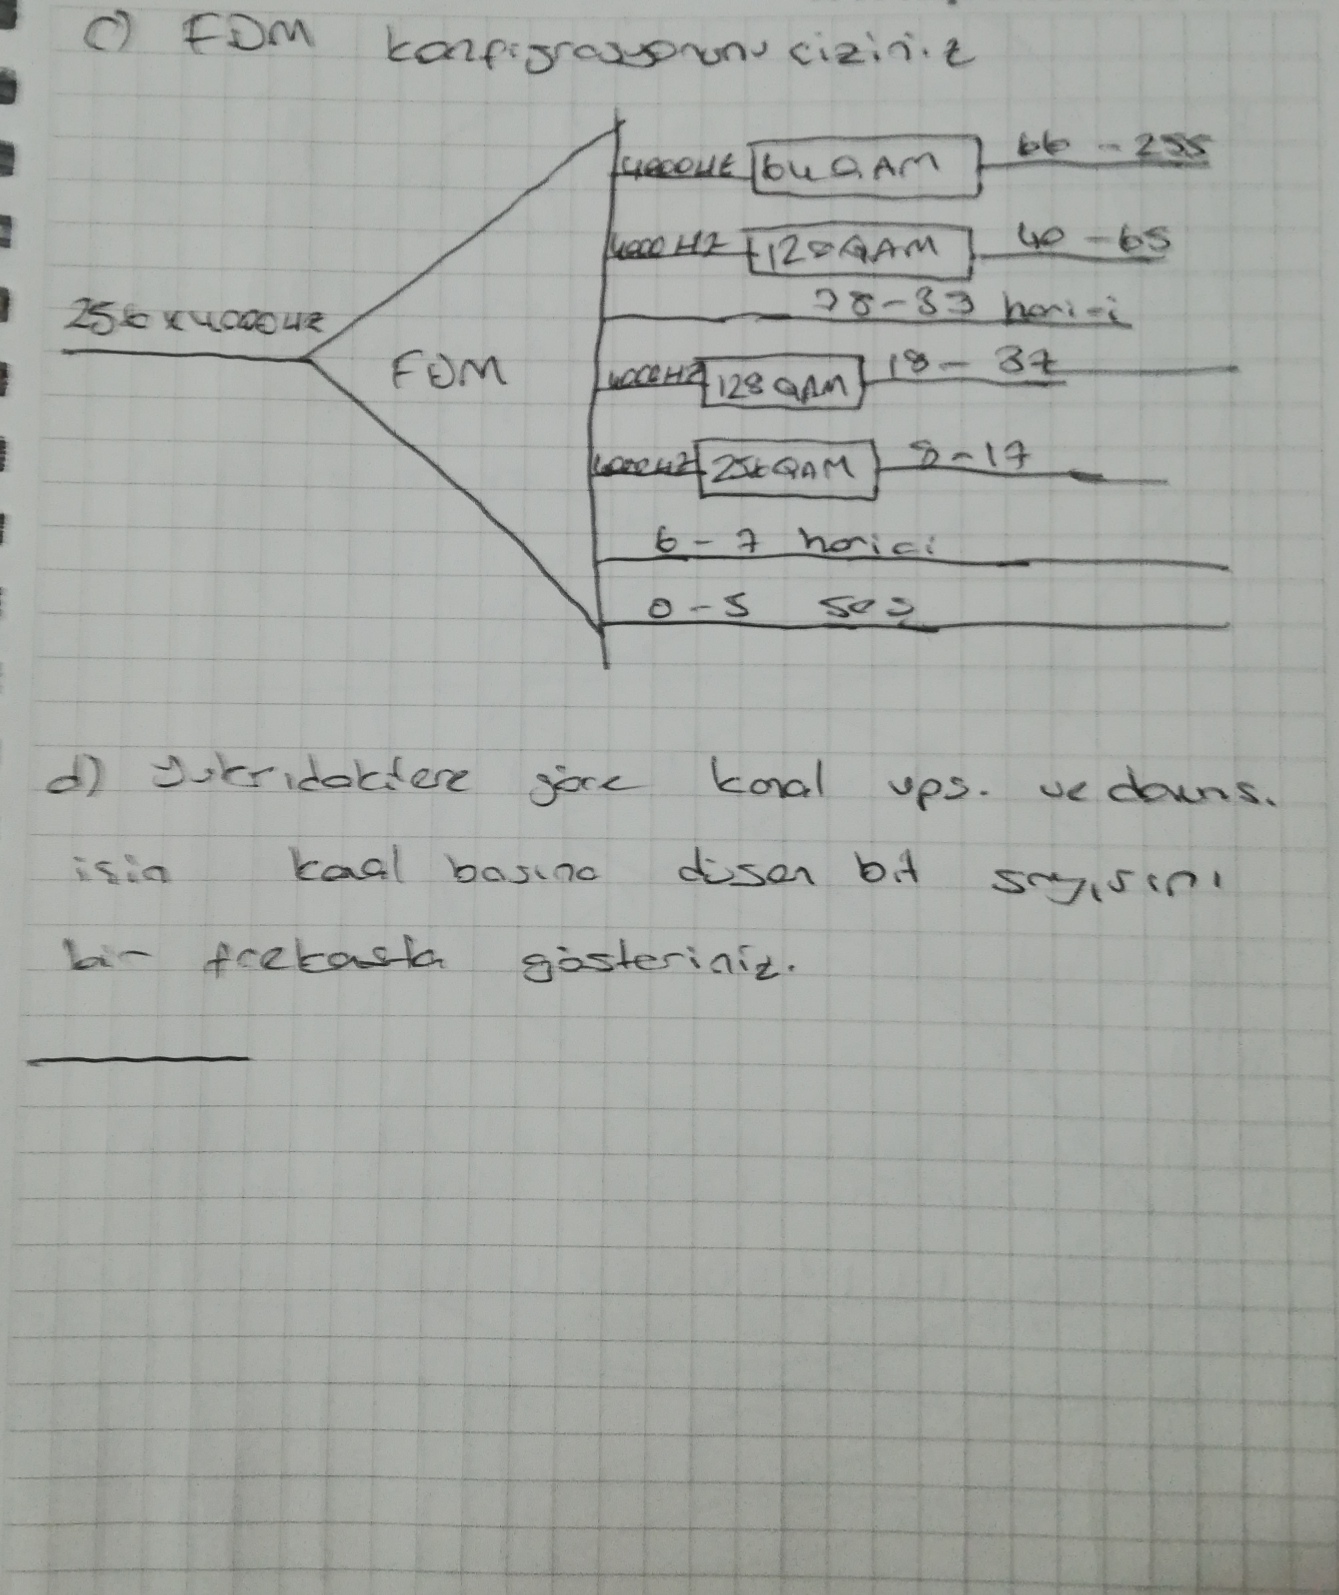 c) FDM konfigrasyonunu çiziniz
4000Hz 64 QAM 66 - 255
4000 Hz 128 QAM 40 - 65
38-39 harici
256 x 4000Hz
FDM
4000Hz 128 QAM 18 - 37
4000Hz 256 QAM 8-17
6 - 7 harici
0 - 5 ses
d) Yukridakilere göre kanal ups. ve downs.
için kanal basına düsen bit sayısını
bir frekasla gösteriniz.